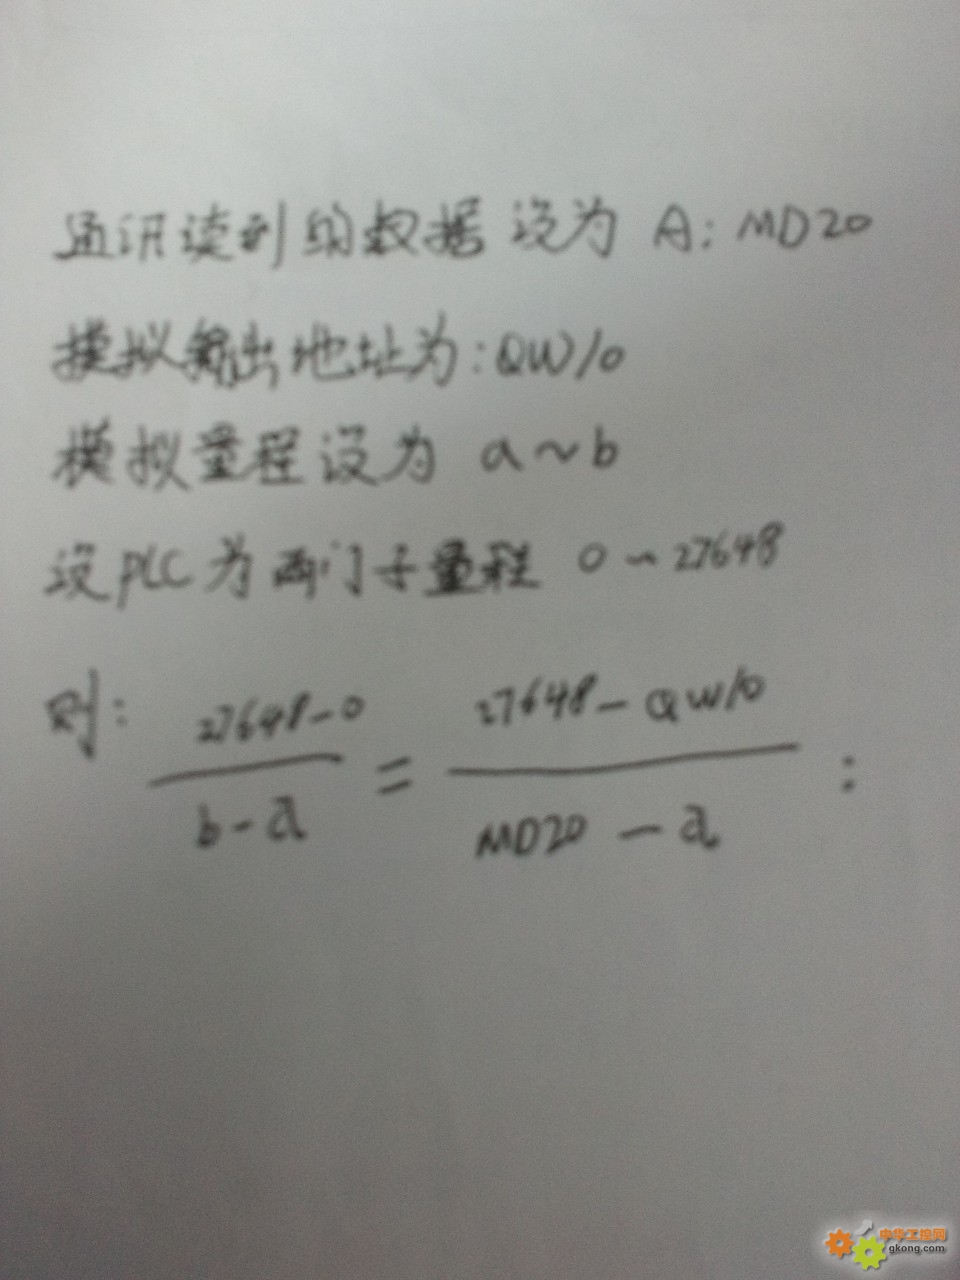 通讯读到的数据设为 A: MD20
模拟输出地址为:QW10
模拟量程设为 a~b
设PLC为西门子量程 0~27648
则: 27648-0 / b-a = 27648-QW10 / MD20-a :
中华工控网
gkong.com